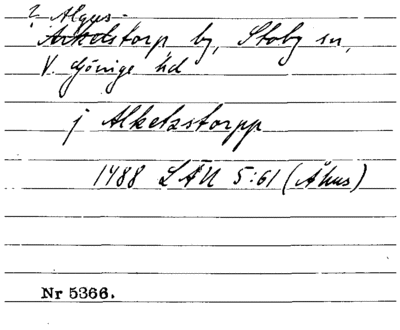 ? Algus-
Arkelstorp by, Stoby sn,
V. Göinge hd
j Alkelzstorpp
1488 LÄU 5:61 (Åhus)
Nr 5366.